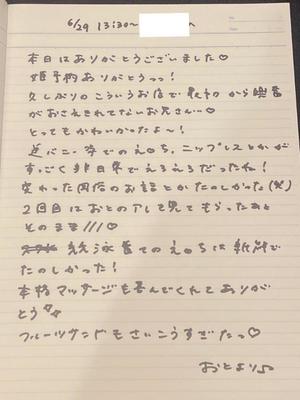 6/29 13:30〜
本日はありがとうございました♡
ありがとうっっ!
久しぶりのこういうお店で から興奮
がおさえきれてないお兄さん…♡
とってもかわいかったよ〜!
逆バニー でのえ○ち、ニップレスとかが
すっごく非日常でえろえろだったね!
変わった のお話とかたのしかった(笑)
2回目はおとのアレして見てもらったあと
そのまま///♡
着てのえ○ちは新鮮で
たのしかった!
本格マッサージも喜んでくれてありが
とう
フルーツサンドもさいこうすぎたっ♡
おとより